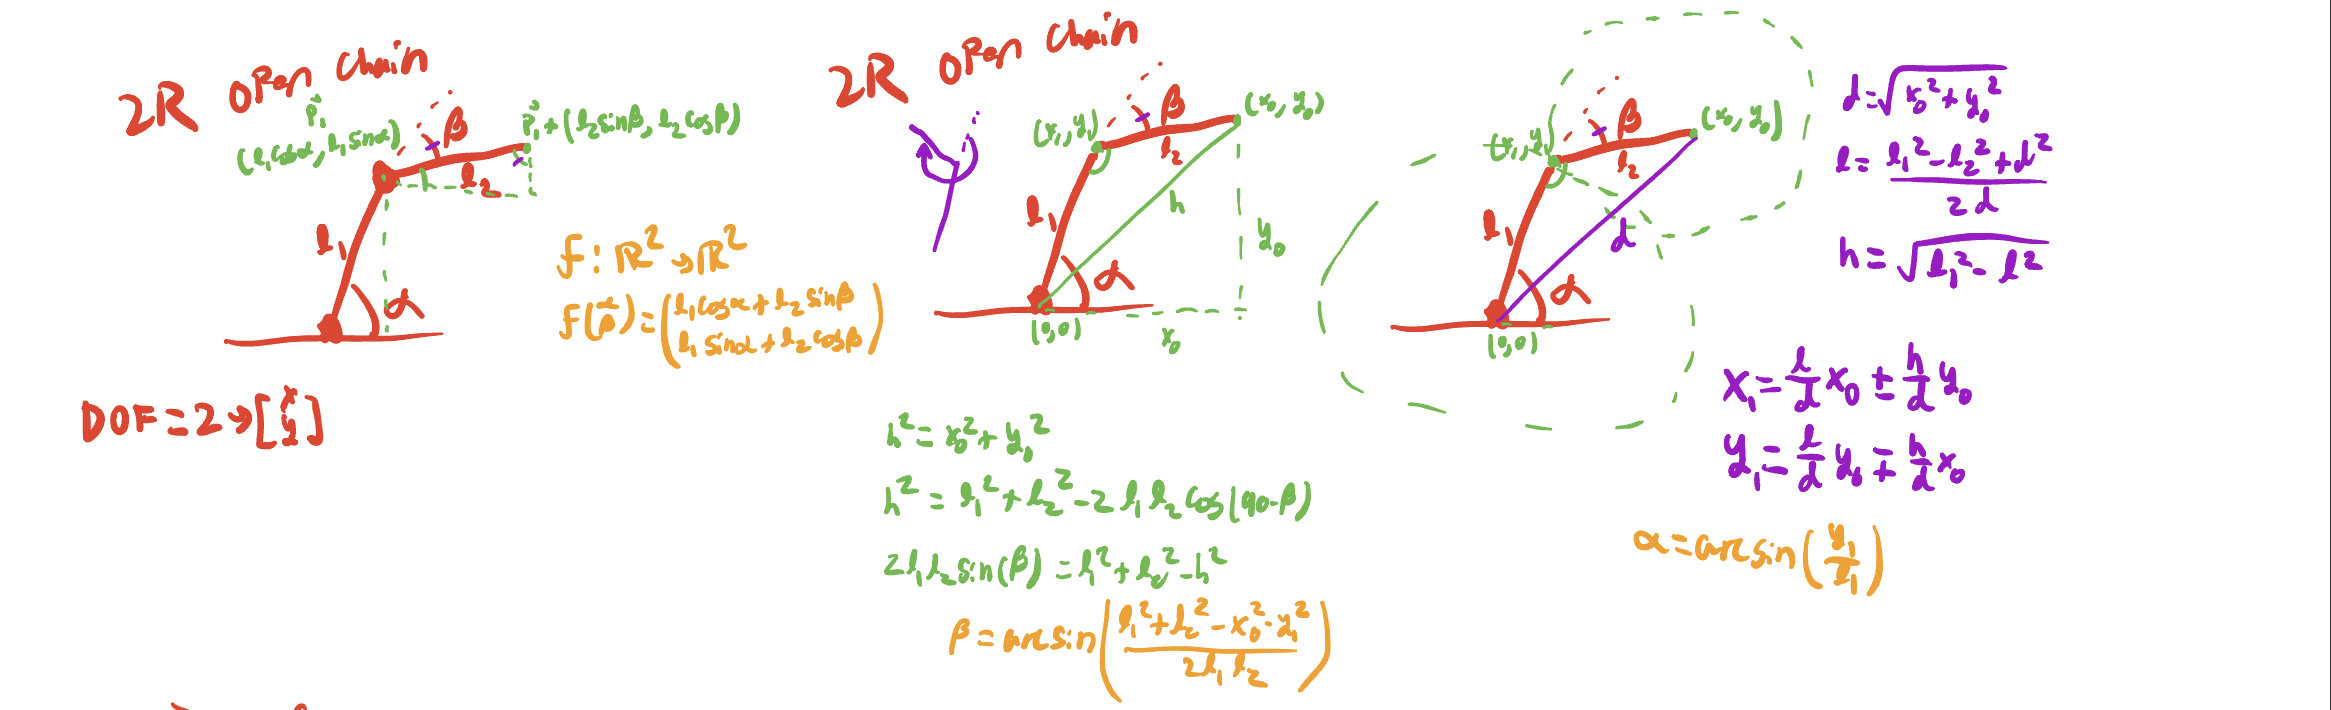 2R open chain
β
P₁
(l₁cosα, l₁sinα)
P₁ + (l₂sinβ, l₂cosβ)
l₂
l₁
α
f: ℝ² → ℝ²
f(α β) = (l₁cosα + l₂ sinβ
l₁ sinα + l₂ cosβ)
DOF = 2 → [x y]
2R open chain
β
(x₀, y₀)
(x₁, y₁)
l₂
l₁
h
y₀
α
(0,0)
x₀
h² = x₀² + y₀²
h² = l₁² + l₂² - 2 l₁ l₂ cos(90-β)
2 l₁ l₂ sin(β) = l₁² + l₂² - h²
β = arcsin((l₁² + l₂² - x₀² - y₁²) / (2 l₁ l₂))
β
(x₀, y₀)
(x₁, y₁)
l₂
l₁
d
α
(0,0)
d = √(x₀² + y₀²)
l = (l₁² - l₂² + d²) / (2d)
h = √(l₁² - l²)
x₁ = l/d x₀ ± h/d y₀
y₁ = l/d y₀ ∓ h/d x₀
α = arcsin(y₁/l₁)